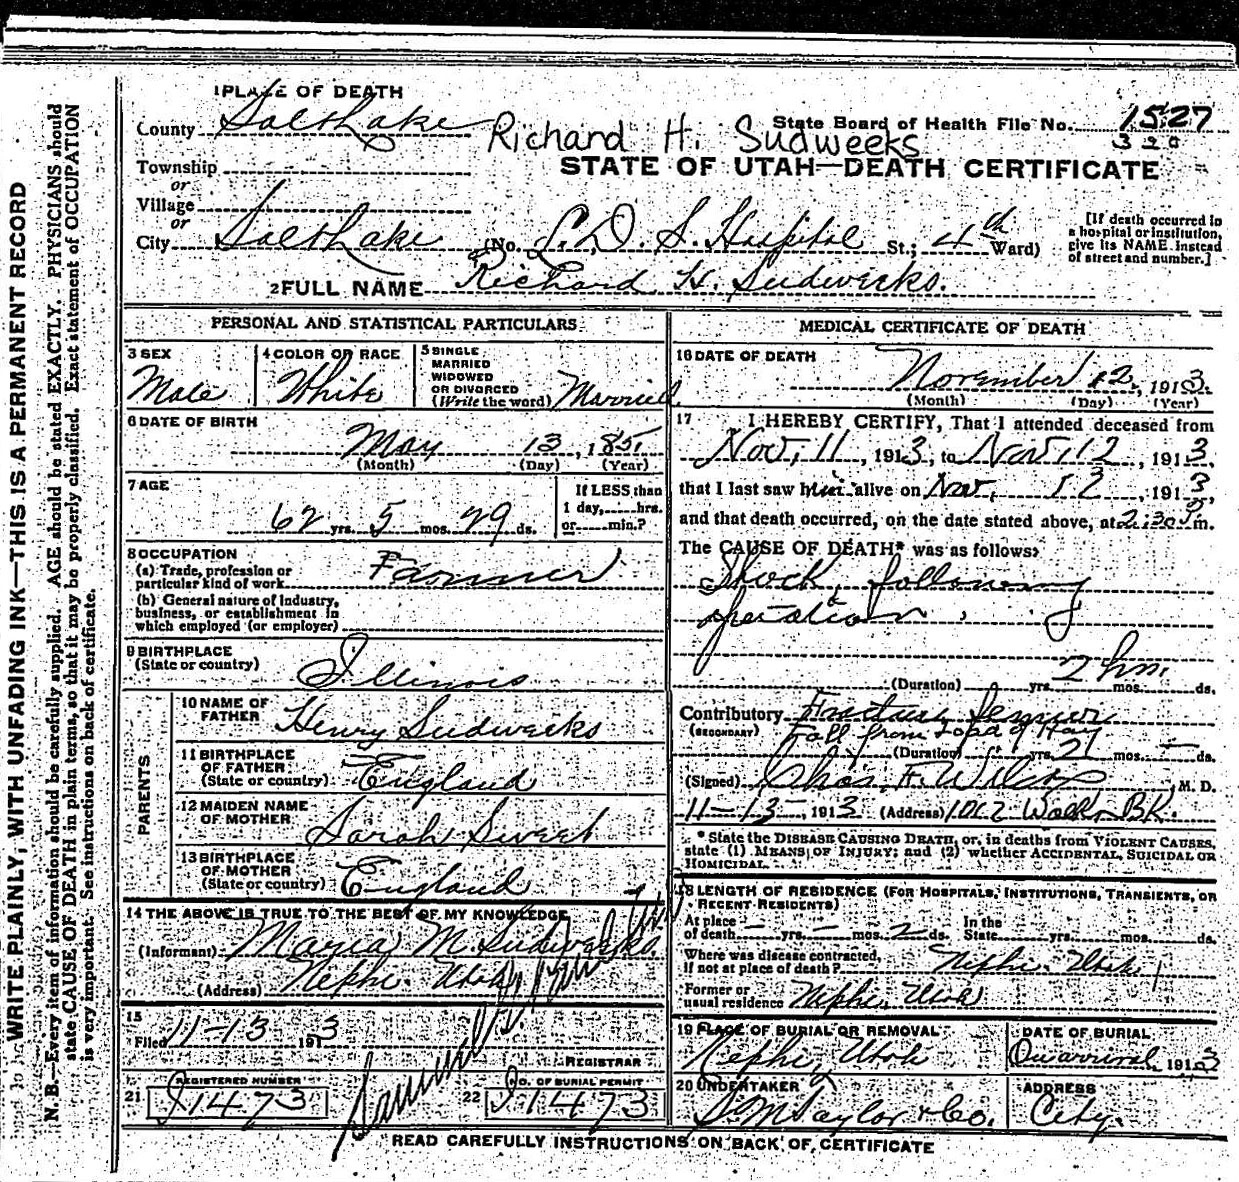 1 PLACE OF DEATH
County Salt Lake
Richard H. Sudweeks
State Board of Health File No. 1527
320
STATE OF UTAH—DEATH CERTIFICATE
Township
or
Village
or
City Salt Lake (No. L. D. S. Hospital St.; 4th Ward)
[If death occurred in a hospital or institution, give its NAME instead of street and number.]
2 FULL NAME Richard H. Sudweeks.
PERSONAL AND STATISTICAL PARTICULARS
3 SEX
Male
4 COLOR OR RACE
White
5 SINGLE
MARRIED
WIDOWED
OR DIVORCED
(Write the word) Married
6 DATE OF BIRTH
May 13, 1851
(Month) (Day) (Year)
7 AGE
62 yrs. 5 mos. 29 ds.
If LESS than
1 day, hrs.
or min.?
8 OCCUPATION
(a) Trade, profession or
particular kind of work Farmer
(b) General nature of industry,
business, or establishment in
which employed (or employer)
9 BIRTHPLACE
(State or country)
Illinois
PARENTS
10 NAME OF
FATHER Henry Sudweeks
11 BIRTHPLACE
OF FATHER
(State or country) England
12 MAIDEN NAME
OF MOTHER Sarah Sweet
13 BIRTHPLACE
OF MOTHER
(State or country) England
14 THE ABOVE IS TRUE TO THE BEST OF MY KNOWLEDGE
(Informant) Maria M. Sudweeks.
(Address) Nephi, Utah
15
Filed 11-13 1913
REGISTRAR
21 REGISTERED NUMBER
J1473
22 NO. OF BURIAL PERMIT
J1473
MEDICAL CERTIFICATE OF DEATH
16 DATE OF DEATH
November 12, 1913.
(Month) (Day) (Year)
17 I HEREBY CERTIFY, That I attended deceased from
Nov, 11, 1913, to Nov, 12, 1913,
that I last saw him alive on Nov, 12, 1913,
and that death occurred, on the date stated above, at 2:30 P.m.
The CAUSE OF DEATH* was as follows:
Shock following
operation
2 hrs.
(Duration) yrs. mos. ds.
Contributory Fracture femur
(SECONDARY) Fall from Load of Hay
(Duration) yrs. 2 mos. ds.
(Signed) Chas. F. Wilcox, M. D.
11-13-, 1913 (Address) 1012 Walker BK.
* State the DISEASE CAUSING DEATH, or, in deaths from VIOLENT CAUSES, state (1) MEANS OF INJURY; and (2) whether ACCIDENTAL, SUICIDAL OR HOMICIDAL.
18 LENGTH OF RESIDENCE (FOR HOSPITALS, INSTITUTIONS, TRANSIENTS, OR RECENT RESIDENTS)
At place
of death - yrs. - mos. 2 ds.
In the
State yrs. mos. ds.
Where was disease contracted,
if not at place of death? Nephi, Utah
Former or
usual residence Nephi, Utah
19 PLACE OF BURIAL OR REMOVAL
Nephi, Utah
DATE OF BURIAL
On arrival, 1913
20 UNDERTAKER
S M Taylor & Co.
ADDRESS
City.
READ CAREFULLY INSTRUCTIONS ON BACK OF CERTIFICATE
WRITE PLAINLY, WITH UNFADING INK—THIS IS A PERMANENT RECORD
N. B.—Every item of information should be carefully supplied. AGE should be stated EXACTLY. PHYSICIANS should
state CAUSE OF DEATH in plain terms, so that it may be properly classified. Exact statement of OCCUPATION
is very important. See instructions on back of certificate.